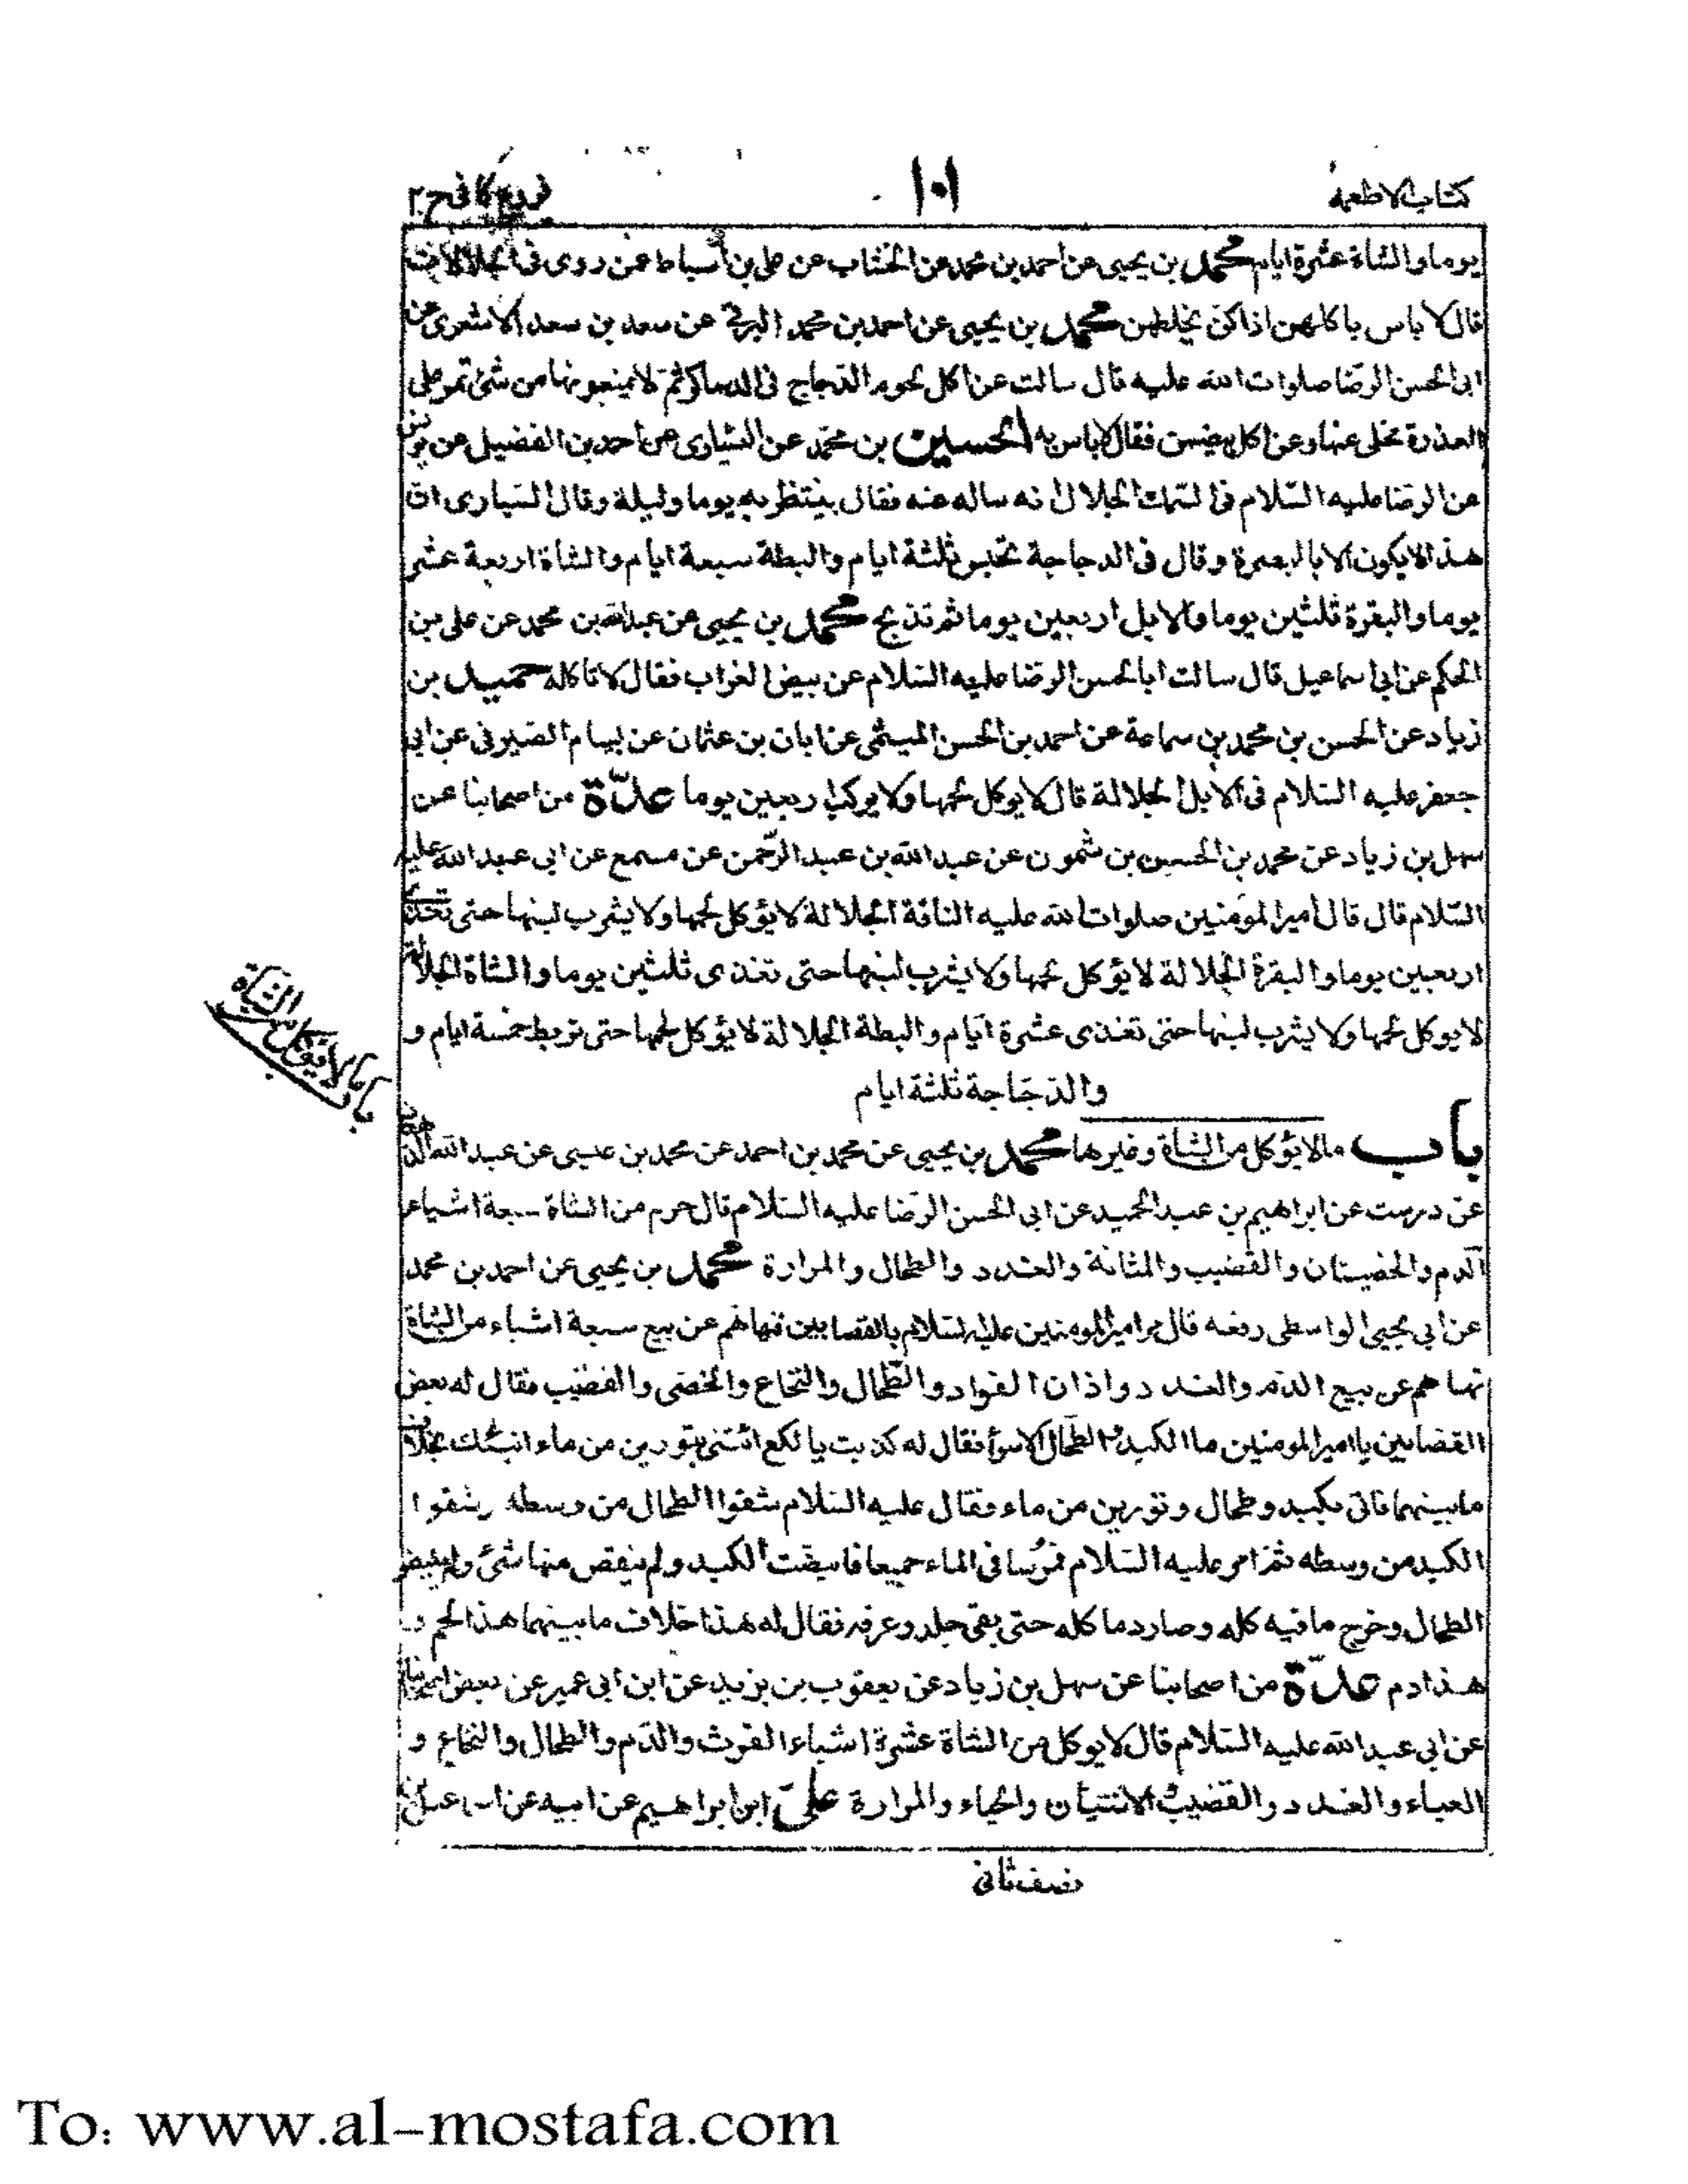 كتاب الاطعمة
١٠١
فروع كافى ج ٢
يوما والشاة عشرة ايام محمد بن يحيى عن احمد بن محمد عن الخشاب عن على بن اسباط عمن روى فى الجلالات
قال لا باس باكلهن اذا كن يخلطن محمد بن يحيى عن احمد بن محمد البرقى عن سعد بن سعد الاشعرى عن
ابى الحسن الرضا صلوات الله عليه قال سالت عن اكل لحوم الدجاج فى الدساكر وهم لا يمنعونها من شئ تمر على
العذرة مخلى عنها وعن اكل بيضهن فقال لا باس به الحسين بن محمد عن السيارى عن احمد بن الفضيل عن يونس
عن الرضا عليه السلام فى السمك الجلال انه ساله عنه فقال ينتظر به يوما وليلة وقال السيارى ان
هذا لا يكون الا بالبصرة وقال فى الدجاجة تحبس ثلثة ايام والبطة سبعة ايام والشاة اربعة عشر
يوما والبقرة ثلثين يوما والابل اربعين يوما ثم تذبح محمد بن يحيى عن عبدالله بن محمد عن على بن
الحكم عن ابى اسماعيل قال سالت ابا الحسن الرضا عليه السلام عن بيض الغراب فقال لا تاكله حميد بن
زياد عن الحسن بن محمد بن سماعة عن احمد بن الحسن الميثمى عن ابان بن عثمان عن بسام الصيرفى عن ابى
جعفر عليه السلام فى الابل الجلالة قال لا يوكل لحمها ولا يركب اربعين يوما عدّة من اصحابنا عن
سهل بن زياد عن محمد بن الحسين بن شمون عن عبد الله بن عبد الرحمن عن مسمع عن ابى عبد الله عليه
السلام قال قال امير المومنين صلوات الله عليه الناقة الجلالة لا يؤكل لحمها ولا يشرب لبنها حتى تغذى
اربعين يوما والبقرة الجلالة لا يؤكل لحمها ولا يشرب لبنها حتى تغذى ثلثين يوما والشاة الجلالة
لا يوكل لحمها ولا يشرب لبنها حتى تغذى عشرة ايام والبطة الجلالة لا يؤكل لحمها حتى تربط خمسة ايام و
والدجاجة ثلثة ايام
باب ما لا يؤكل من الشاة
باب ما لا يؤكل من الشاة وغيرها محمد بن يحيى عن محمد بن احمد عن محمد بن عيسى عن عبد الله الدهقان
عن درست عن ابراهيم بن عبد الحميد عن ابى الحسن الرضا عليه السلام قال حرم من الشاة سبعة اشياء
الدم والخصيتان والقضيب والمثانة والغدد والطحال والمرارة محمد بن يحيى عن احمد بن محمد
عن ابى يحيى الواسطى رفعه قال مر امير المومنين عليه السلام بالقصابين فنهاهم عن بيع سبعة اشياء من الشاة
نهاهم عن بيع الدم والغدد واذان الفواد والطحال والنخاع والخصى والقضيب فقال له بعض
القصابين يا امير المومنين ما الكبد والطحال الا سواء فقال له كذبت يا لكع ائتنى بتورين من ماء انبئك بخلاف
ما بينهما فاتى بكبد وطحال وتورين من ماء فقال عليه السلام شقوا الطحال من وسطه وشقوا
الكبد من وسطه ثم امر عليه السلام فمرسا فى الماء جميعا فابيضت الكبد ولم ينقص منها شئ ولم يبيض
الطحال وخرج ما فيه كله وصار دما كله حتى بقى جلد وعرقه فقال له هذا خلاف ما بينهما هذا لحم و
هذا دم عدّة من اصحابنا عن سهل بن زياد عن يعقوب بن يزيد عن ابن ابى عمير عن بعض اصحابنا
عن ابى عبد الله عليه السلام قال لا يوكل من الشاة عشرة اشياء الفرث والدم والطحال والنخاع و
العلباء والغدد والقضيب والانثيان والحياء والمرارة علىّ ابن ابراهيم عن ابيه عن اسماعيل بن
نصف ثانى
To: www.al-mostafa.com